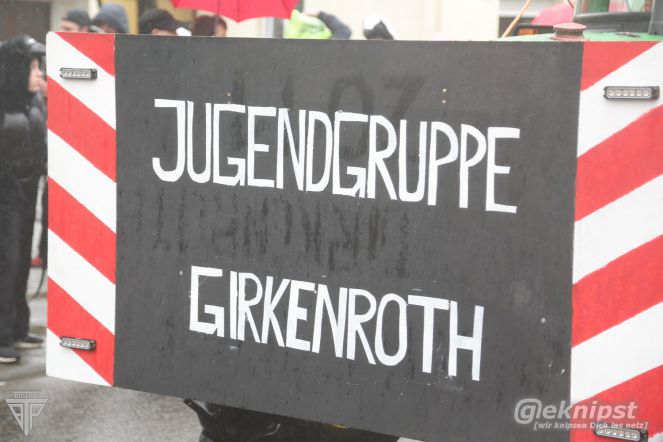 JUGENDGRUPPE
GIRKENROTH
@eknipst
[wir knipsen Dich ins netz]